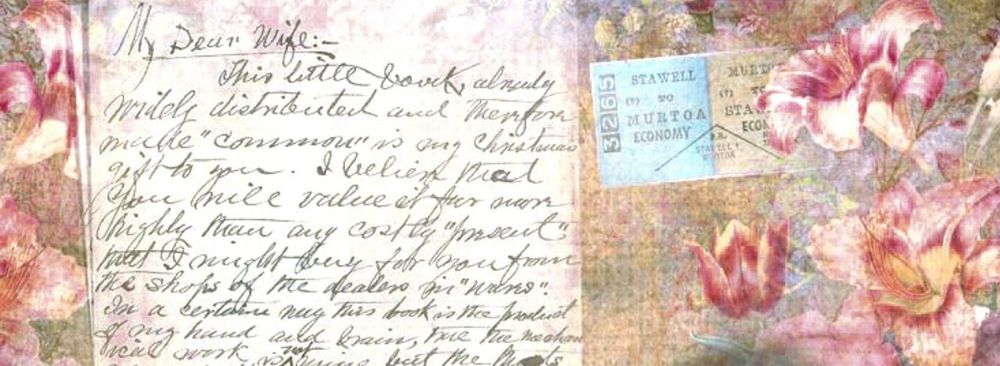 My Dear Wife:-
This little book, already
widely distributed and therefore
made "common" is my Christmas
gift to you. I believe that
you will value it far more
highly than any costly "present"
that I might buy for you from
the shops of the dealers in "wares".
In a certain way this book is the product
of my hand and brain, true the mechan
ical work is not mine but the
32265
STAWELL
(1) TO
MURTOA
ECONOMY
MURTO
(1) TO
STA
ECON